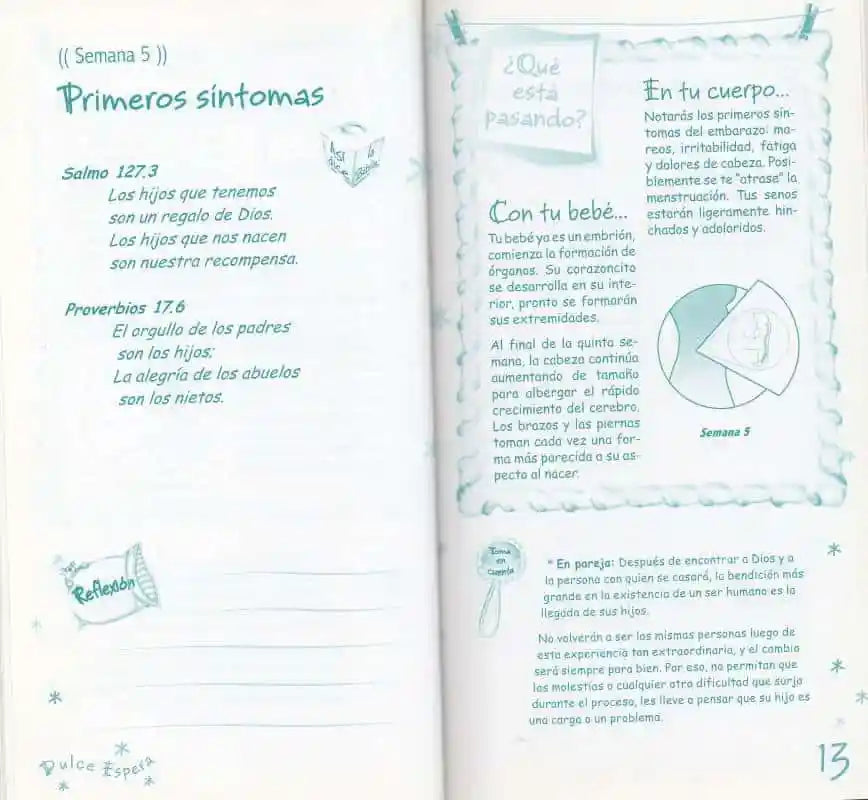 (( Semana 5 ))
Primeros síntomas
Así
dice
la
Biblia
Salmo 127.3
Los hijos que tenemos
son un regalo de Dios.
Los hijos que nos nacen
son nuestra recompensa.
Proverbios 17.6
El orgullo de los padres
son los hijos;
La alegría de los abuelos
son los nietos.
Reflexión
Dulce Espera
¿Qué
está
pasando?
Con tu bebé...
Tu bebé ya es un embrión,
comienza la formación de
órganos. Su corazoncito
se desarrolla en su inte-
rior, pronto se formarán
sus extremidades.
Al final de la quinta se-
mana, la cabeza continúa
aumentando de tamaño
para albergar el rápido
crecimiento del cerebro.
Los brazos y las piernas
toman cada vez una for-
ma más parecida a su as-
pecto al nacer.
En tu cuerpo...
Notarás los primeros sín-
tomas del embarazo: ma-
reos, irritabilidad, fatiga
y dolores de cabeza. Posi-
blemente se te "atrase" la
menstruación. Tus senos
estarán ligeramente hin-
chados y adoloridos.
Semana 5
Toma
en
cuenta
* En pareja: Después de encontrar a Dios y a
la persona con quien se casará, la bendición más
grande en la existencia de un ser humano es la
llegada de sus hijos.
No volverán a ser las mismas personas luego de
esta experiencia tan extraordinaria, y el cambio
será siempre para bien. Por eso, no permitan que
las molestias o cualquier otra dificultad que surja
durante el proceso, les lleve a pensar que su hijo es
una carga o un problema.
13